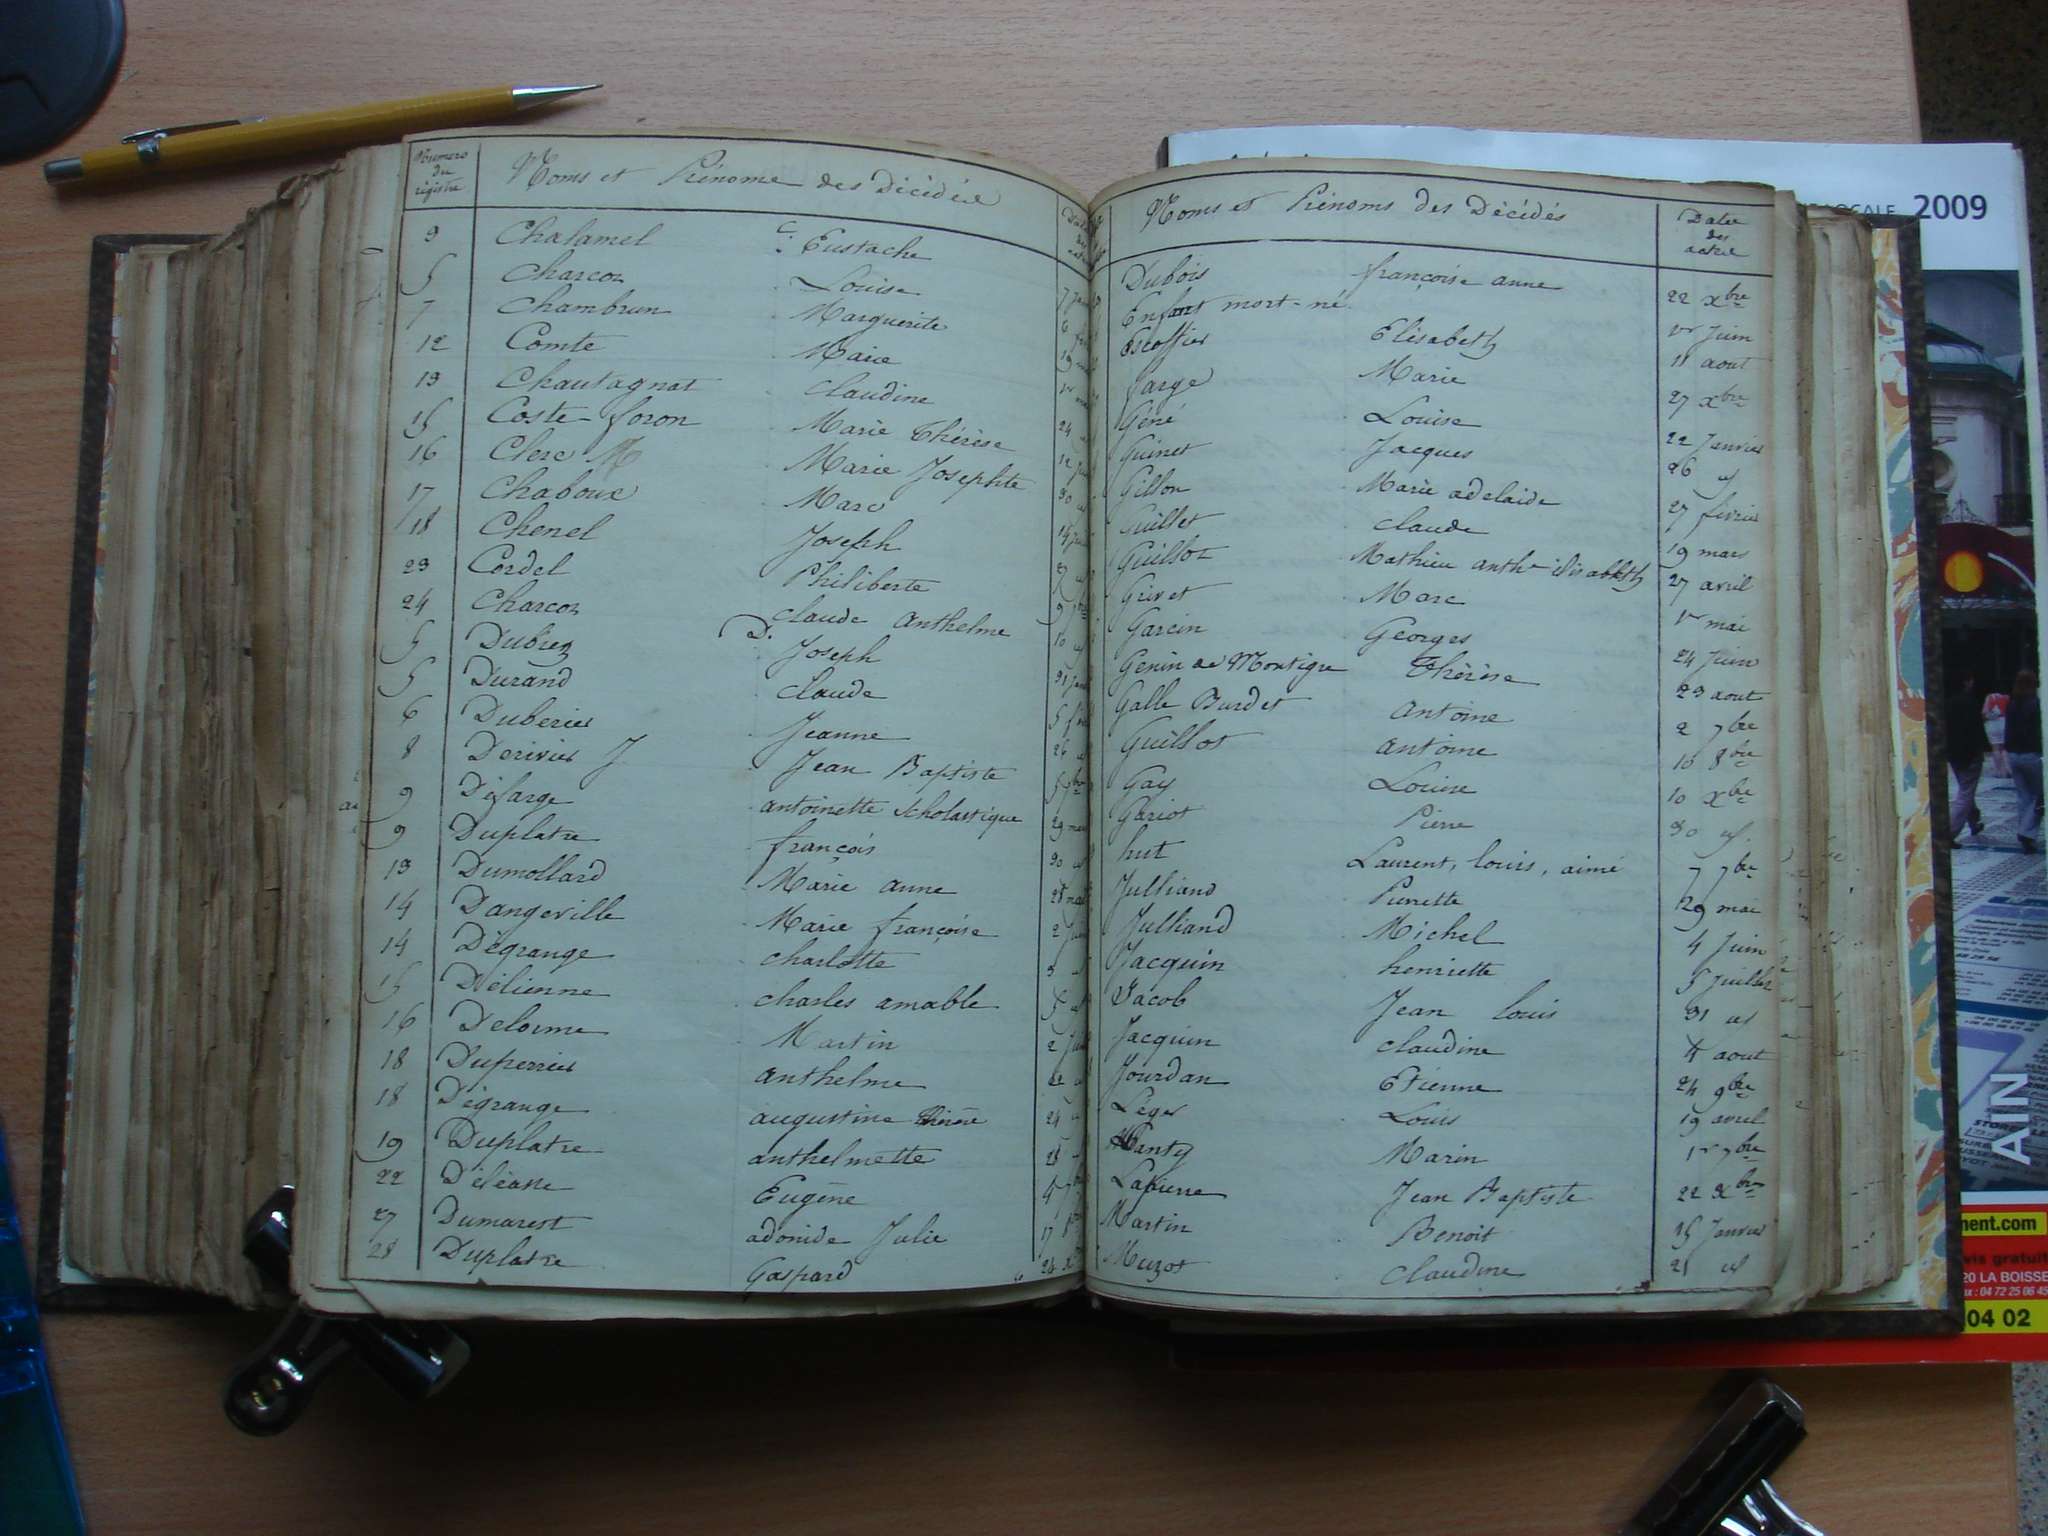 Numero du régistre
Noms et Prénoms des Décédés
9 Chalamel C. Eustache
5 Charcon Louise
7 Chambrun Marguerite
12 Comte Marie
13 Chautagnat Claudine
15 Coste-foron Marie Thérèse
16 Clerc M Marie Josephte
17 Chaboux Marc
18 Chenel Joseph
23 Cordel Philiberte
24 Charcon Claude Anthelme
5 Dubrez D. Joseph
5 Durand Claude
6 Duberier Jeanne
8 Derivier J Jean Baptiste
9 Défarge antoinette Scholastique
9 Duplatre françois
13 Dumollard Marie anne
14 Dangeville Marie françoise
14 Dégrange charlotte
15 Délienne charles amable
16 Delorme Martin
18 Duperrier anthelme
18 Dégrange augustine thérèse
19 Duplatre anthelmette
22 Eugène
27 Dumarest adonide Julie
28 Duplatre Gaspard
Noms et Prénoms des Décédés
Date des actes
Dubois françoise anne 22 Xbre
Enfant mort-né 1er Juin
Escoffier Elisabeth 11 aout
farge Marie 27 Xbre
Géné Louise 22 Janvier
Guinet Jacques 26 id
Gillon Marie adelaide 27 fevrier
Guillet claude 19 mars
Guillot Mathieu anthe elisabeth 27 avril
Grivet Marc 1er mai
Garcin Georges 24 Juin
Genin de Montigre Thérèse 23 aout
Galle Burdet Antoine 2 7bre
Guillot antoine 10 8bre
Gay Louise 10 Xbre
Gariot Pierre 30 id
hut Laurent, louis, aimé 7 7bre
Julliand Pierrette 29 mai
Julliand Michel 4 Juin
Jacquin henriette 5 Juillet
Jacob Jean Louis 31 id
Jacquin claudine 4 aout
Jourdan Etienne 24 9bre
Leger Louis 19 avril
Marin 1er 7bre
Lapierre Jean Baptiste 22 Xbre
Martin Benoit 15 Janvier
Muzot Claudine 21 id
2009
AIN
ment.com
LA BOISSE
04 02